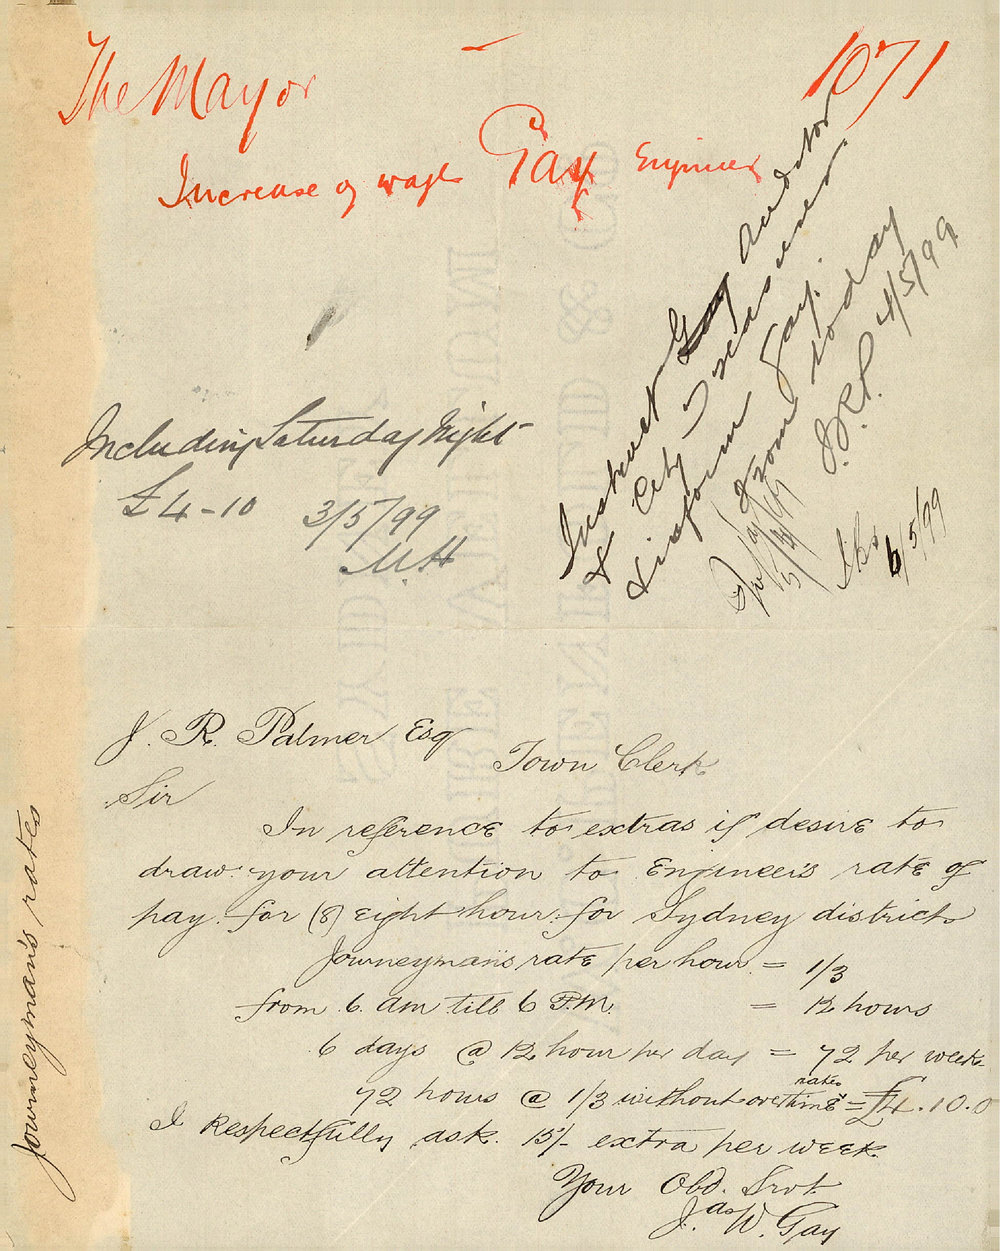 The Mayor
1071
Increase of wages Gay Engineer
Instruct Gay Auditor
& City Treasurer
& inform Gay.
from today
J.R.P. 4/5/99
5/5/99
6/5/99
Including Saturday Night
£4-10 3/5/99
M H
J. R. Palmer Esq
Town Clerk
Sir
In reference to extras if desire to
draw your attention to Engineer's rate of
pay for (8) Eight hour for Sydney district
Journeyman's rate per hour = 1/3
from 6 am till 6 P.M. = 12 hours
6 days @ 12 hour per day = 72 per week
72 hours @ 1/3 without overtime rates = £4.10.0
I Respectfully ask 15/- extra per week
Your Obd. Srvt
Jas W. Gay
Journeyman's rates